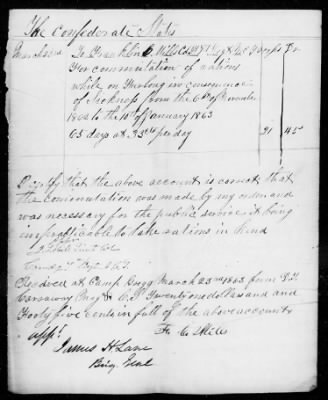 The Confederate States
March 23rd To Franklin C Mills Co 7th Regt N.C. Troops Dr
For commutation of rations
while on Furlough in consequence
of Sickness from the 6th of November
1862 to the 10th of January 1863
65 days at 33 cts per day 21 45
I certify that the above account is correct that
the commutation was made by my order and
was necessary for the public service it being
impracticable to take rations in kind
Lieut Col
Comdg 7th Regt N.C.T
Received at Camp Gregg March 23rd 1863 from
Maj & C.S. Twenty one dollars and
Forty five cents in full of the above account
Fr. C. Mills
app!
James H Lane
Brig Genl